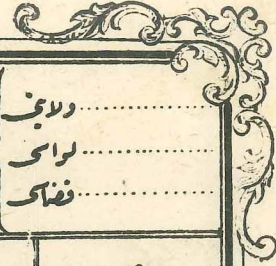 .................. ولايتى
.................. لواسى
.................. قضاسى